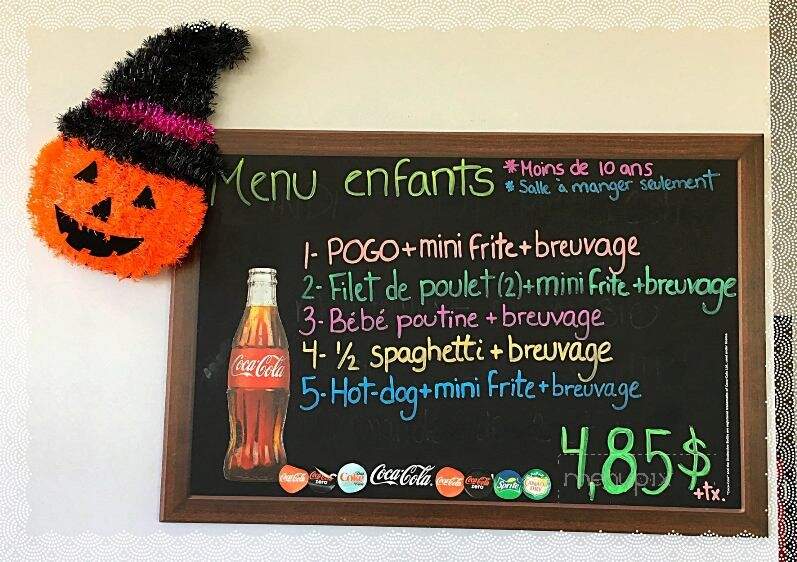 Menu enfants
*Moins de 10 ans
*Salle à manger seulement
1- POGO+mini frite+breuvage
2- Filet de poulet (2)+mini frite+breuvage
3- Bébé poutine + breuvage
4- 1/2 spaghetti + breuvage
5- Hot-dog+mini frite+breuvage
Coca-Cola
4,85$
+tx.
Coca-Cola Coca-Cola zero Diet Coke Coca-Cola Coca-Cola Coca-Cola zero Sprite Canada Dry
menupix